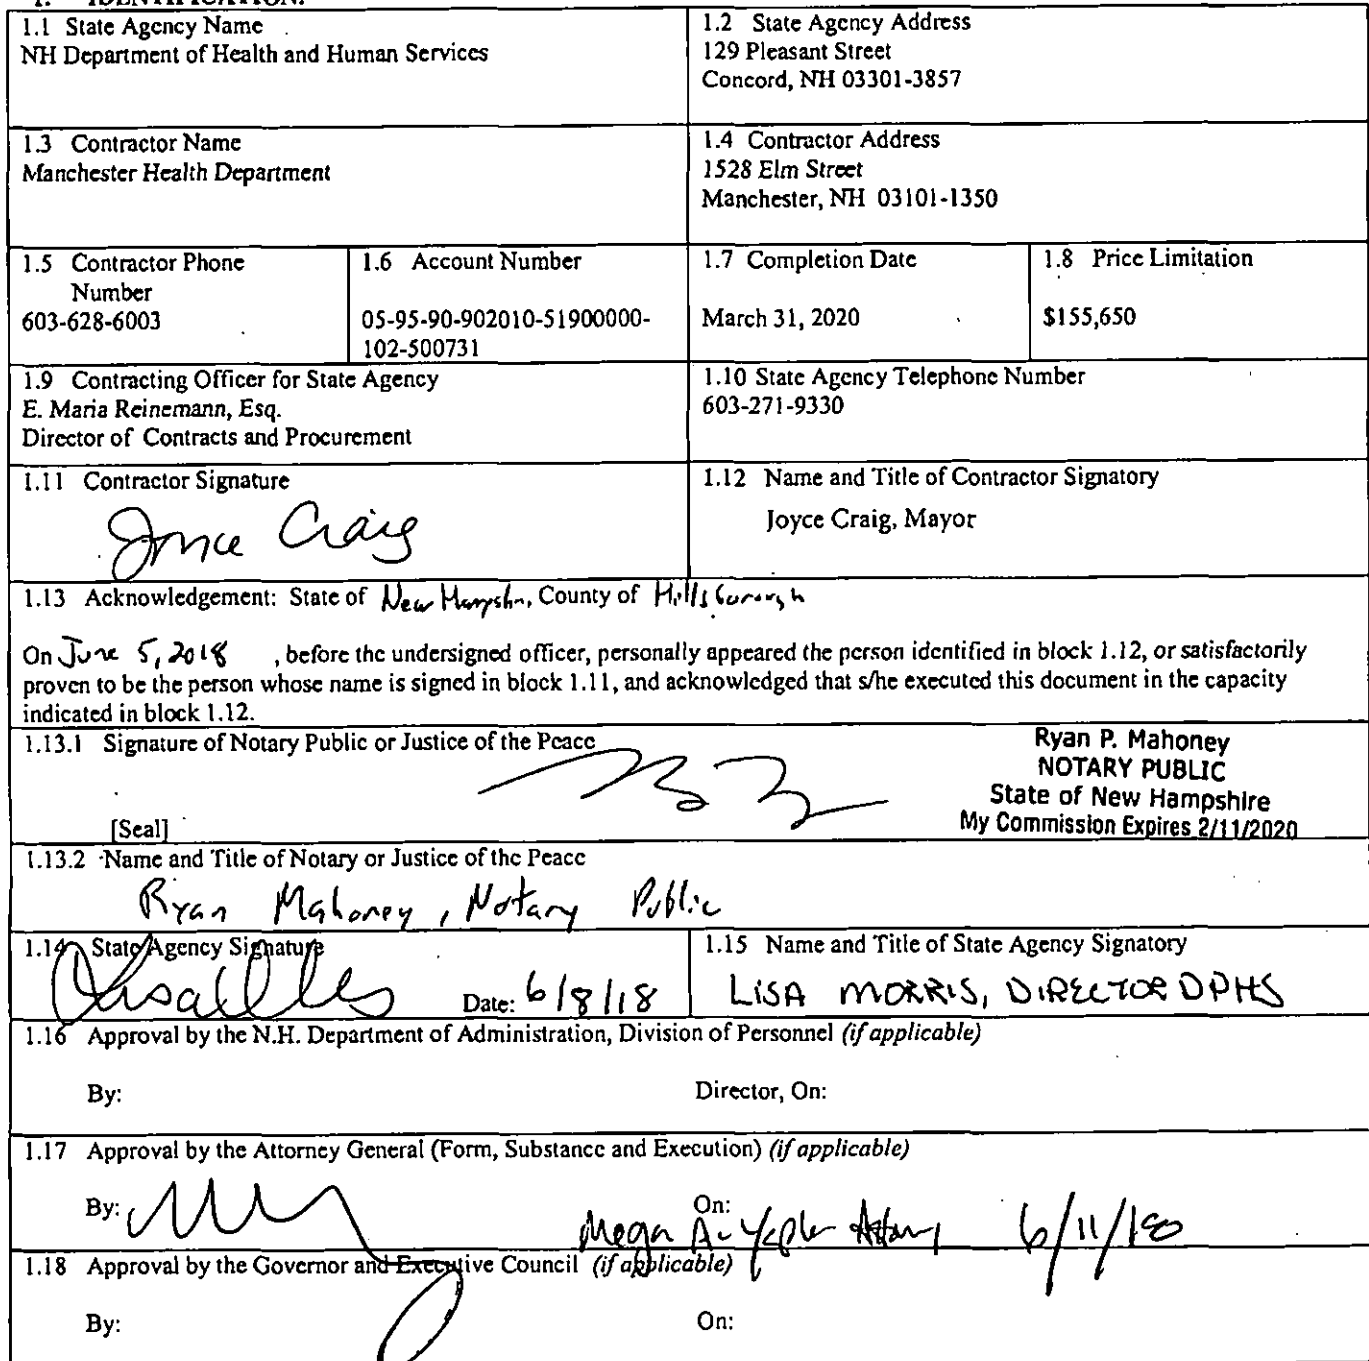 1. IDENTIFICATION.
1.1 State Agency Name
NH Department of Health and Human Services
1.2 State Agency Address
129 Pleasant Street
Concord, NH 03301-3857
1.3 Contractor Name
Manchester Health Department
1.4 Contractor Address
1528 Elm Street
Manchester, NH 03101-1350
1.5 Contractor Phone
Number
603-628-6003
1.6 Account Number
05-95-90-902010-51900000-
102-500731
1.7 Completion Date
March 31, 2020
1.8 Price Limitation
$155,650
1.9 Contracting Officer for State Agency
E. Maria Reinemann, Esq.
Director of Contracts and Procurement
1.10 State Agency Telephone Number
603-271-9330
1.11 Contractor Signature
Joyce Craig
1.12 Name and Title of Contractor Signatory
Joyce Craig, Mayor
1.13 Acknowledgement: State of New Hampshire, County of Hillsborough
On June 5, 2018 , before the undersigned officer, personally appeared the person identified in block 1.12, or satisfactorily
proven to be the person whose name is signed in block 1.11, and acknowledged that s/he executed this document in the capacity
indicated in block 1.12.
1.13.1 Signature of Notary Public or Justice of the Peace
[Seal]
Ryan P. Mahoney
NOTARY PUBLIC
State of New Hampshire
My Commission Expires 2/11/2020
1.13.2 Name and Title of Notary or Justice of the Peace
Ryan Mahoney, Notary Public
1.14 State Agency Signature
Date: 6/8/18
1.15 Name and Title of State Agency Signatory
LISA MORRIS, DIRECTOR DPHS
1.16 Approval by the N.H. Department of Administration, Division of Personnel (if applicable)
By:
Director, On:
1.17 Approval by the Attorney General (Form, Substance and Execution) (if applicable)
By:
On:
6/11/18
1.18 Approval by the Governor and Executive Council (if applicable)
By:
On: